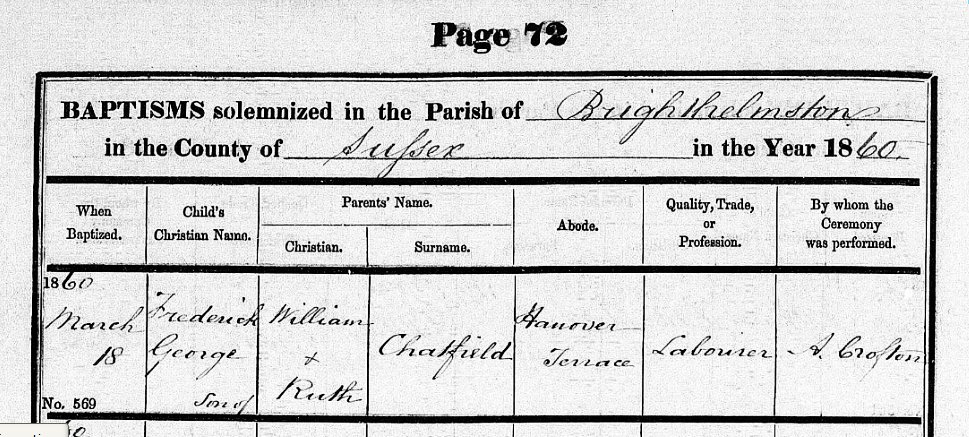 Page 72
BAPTISMS solemnized in the Parish of Brighthelmston
in the County of Sussex in the Year 1860.
When Baptized.
Child's Christian Name.
Parents' Name.
Christian.
Surname.
Abode.
Quality, Trade, or Profession.
By whom the Ceremony was performed.
1860
March
18
No. 569
Frederick
George
Son of
William
+
Ruth
Chatfield
Hanover
Terrace
Labourer
A. Crofton